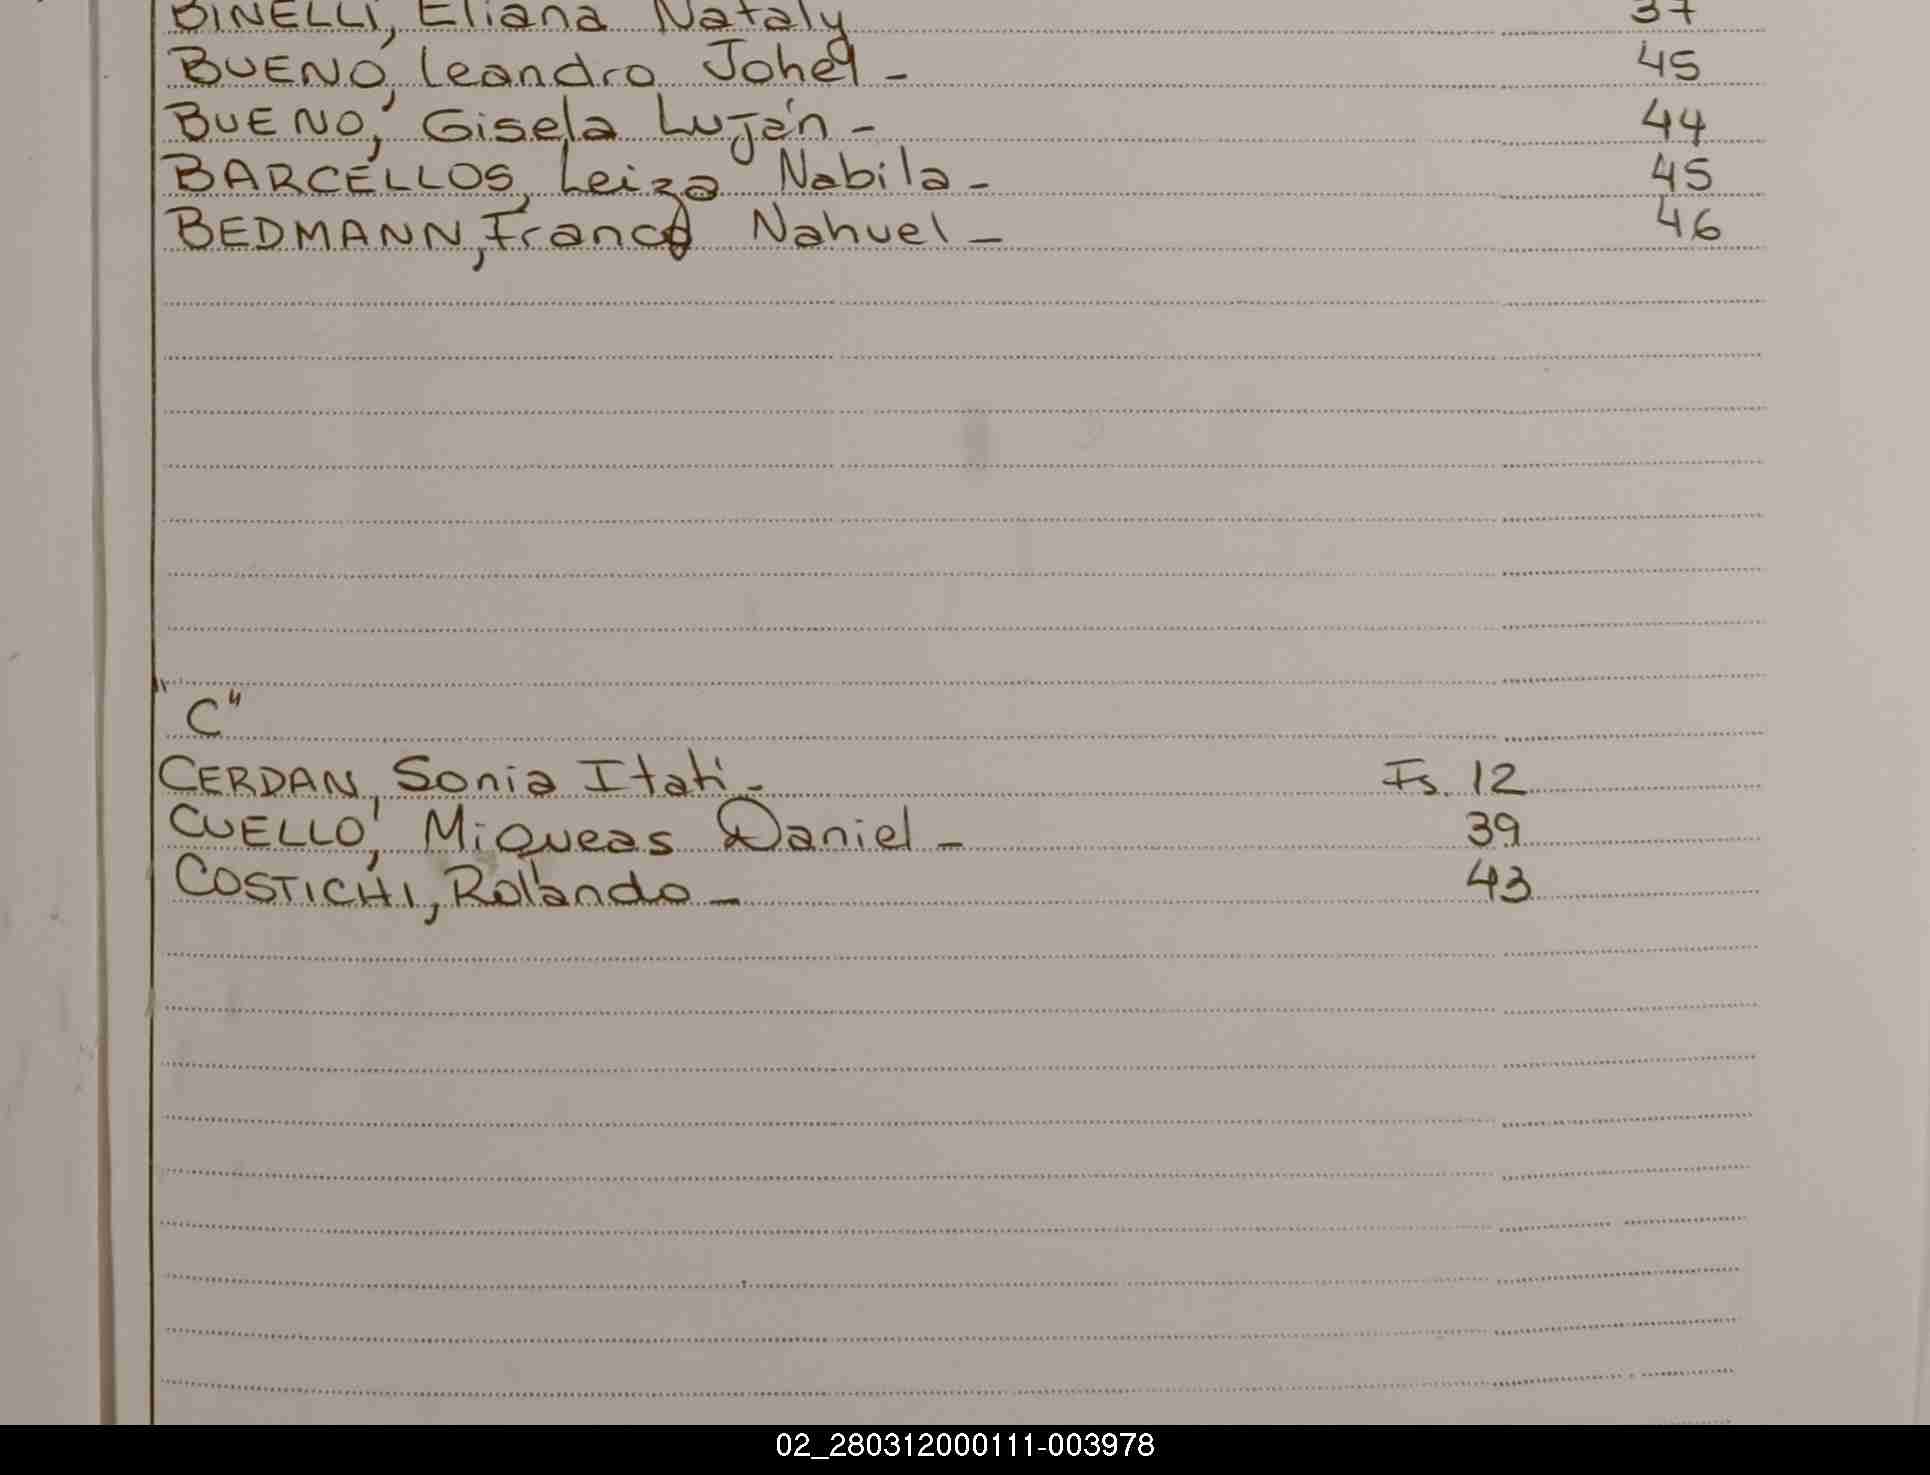 BINELLI, Eliana Nataly 37
BUENO, Leandro Johel - 45
BUENO, Gisela Luján - 44
BARCELLOS, Leiza Nabila - 45
BEDMANN, Franco Nahuel - 46
"C"
CERDAN, Sonia Itatí - Fs. 12
CUELLO, Miqueas Daniel - 39
COSTICHI, Rolando - 43
02_280312000111-003978